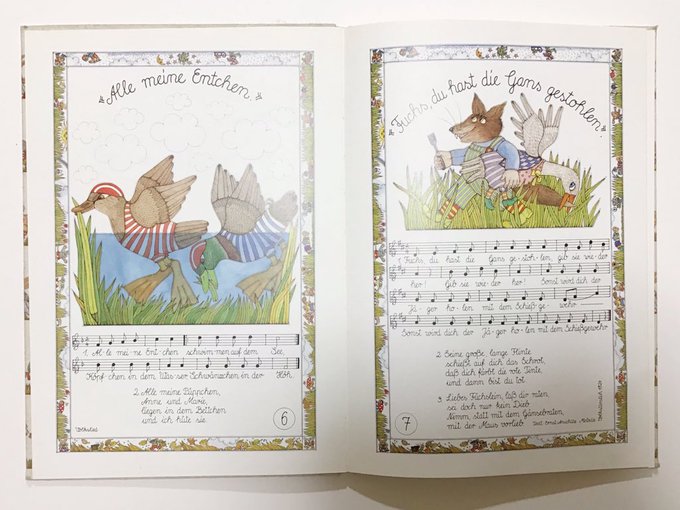 Alle meine Entchen
1 Al-le mei-ne Ent-chen schwim-men auf dem See,
Köpf-chen in dem Was-ser Schwänzchen in der Höh.
2 Alle meine Püppchen,
Anne und Marie,
liegen in dem Bettchen
und ich hüte sie.
Volkslied
6
Fuchs, du hast die Gans gestohlen
1 Fuchs du hast die Gans ge-stoh-len, gib sie wie-der
her! Gib sie wie-der her! Sonst wird dich der
Jä-ger ho-len mit dem Schieß-ge-wehr.
Sonst wird dich der Jä-ger ho-len mit dem Schießgewehr
2 Seine große, lange Flinte
schießt auf dich das Schrot,
daß dich färbt die rote Tinte,
und dann bist du tot.
3 Liebes Füchslein, laß dir raten,
sei doch nur kein Dieb
Nimm, statt mit dem Gänsebraten,
mit der Maus vorlieb
Text: Ernst Anschütz, Melodie
7